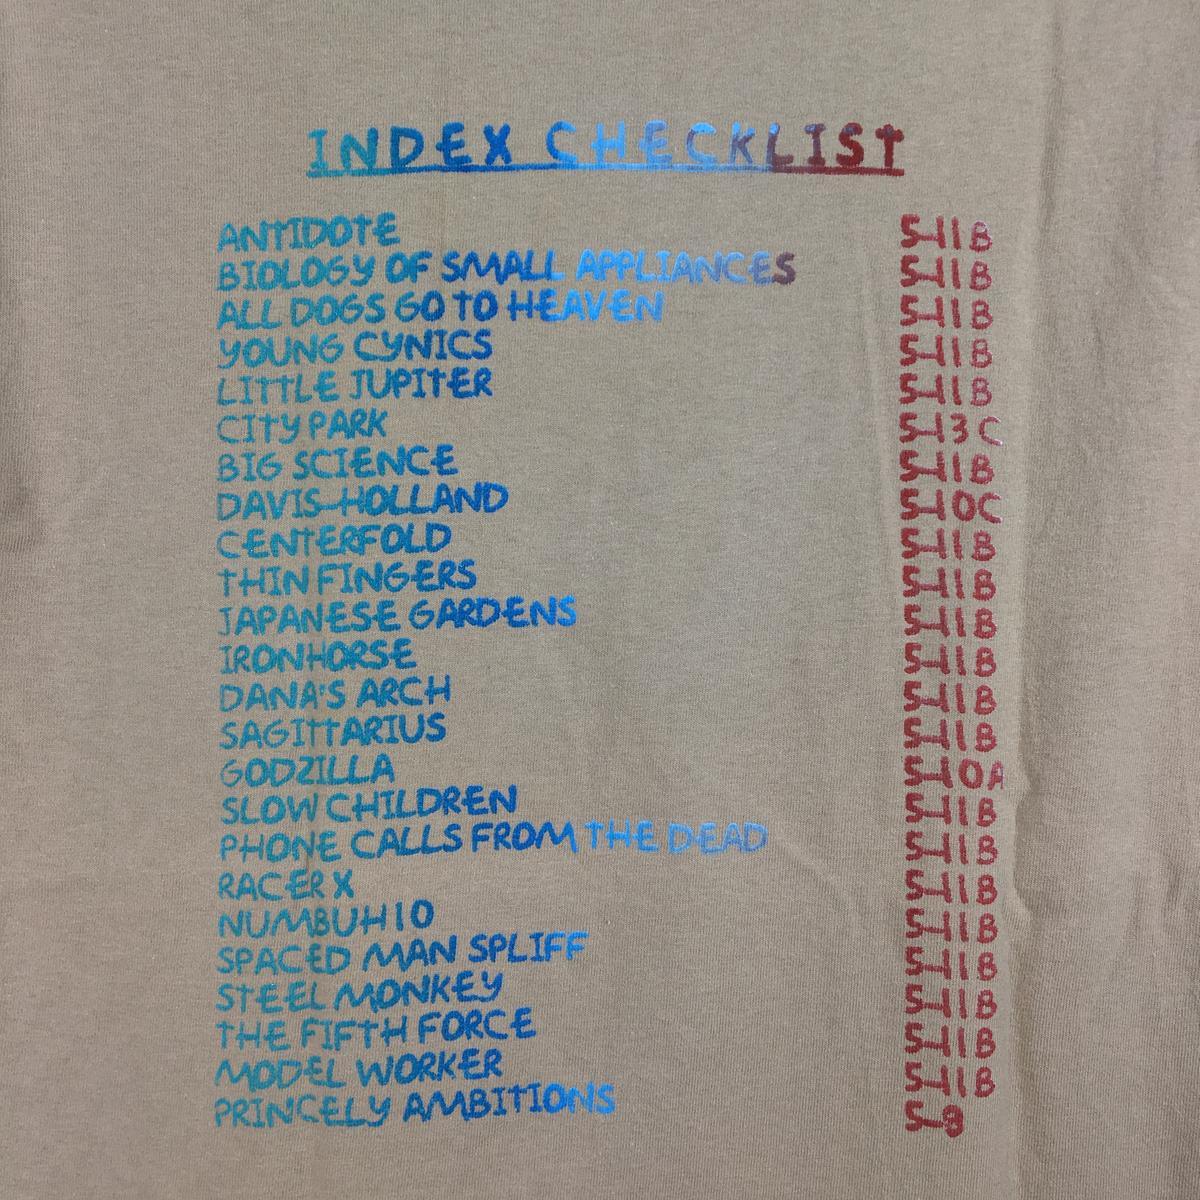 INDEX CHECKLIST
ANTIDOTE 5.11B
BIOLOGY OF SMALL APPLIANCES 5.11B
ALL DOGS GO TO HEAVEN 5.11B
YOUNG CYNICS 5.11B
LITTLE JUPITER 5.11B
CITY PARK 5.13C
BIG SCIENCE 5.11B
DAVIS-HOLLAND 5.10C
CENTERFOLD 5.11B
THIN FINGERS 5.11B
JAPANESE GARDENS 5.11B
IRONHORSE 5.11B
DANA'S ARCH 5.11B
SAGITTARIUS 5.11B
GODZILLA 5.10A
SLOW CHILDREN 5.11B
PHONE CALLS FROM THE DEAD 5.11B
RACER X 5.11B
NUMBUH 10 5.11B
SPACED MAN SPLIFF 5.11B
STEEL MONKEY 5.11B
THE FIFTH FORCE 5.11B
MODEL WORKER 5.11B
PRINCELY AMBITIONS 5.9